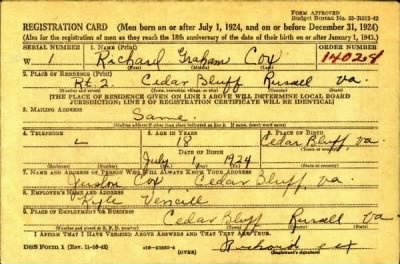 FORM APPROVED
Budget Bureau No. 33-R012-42
REGISTRATION CARD (Men born on or after July 1, 1924, and on or before December 31, 1924)
(Also for the registration of men as they reach the 18th anniversary of the date of their birth on or after January 1, 1943.)
SERIAL NUMBER 1. NAME (Print) ORDER NUMBER
W 1 Richard Graham Cox 14028
(First) (Middle) (Last)
2. PLACE OF RESIDENCE (Print)
Rt. 2. Cedar Bluff Russell Va.
[THE PLACE OF RESIDENCE GIVEN ON LINE 2 ABOVE WILL DETERMINE LOCAL BOARD
JURISDICTION; LINE 2 OF REGISTRATION CERTIFICATE WILL BE IDENTICAL]
3. MAILING ADDRESS
Same.
4. TELEPHONE 5. AGE IN YEARS 6. PLACE OF BIRTH
18 Cedar Bluff
DATE OF BIRTH
July 1 1924 Va.
7. NAME AND ADDRESS OF PERSON WHO WILL ALWAYS KNOW YOUR ADDRESS
Cox Cedar Bluff, Va.
8. EMPLOYER'S NAME AND ADDRESS
Kyle Vencill
9. PLACE OF EMPLOYMENT OR BUSINESS
Cedar Bluff Russell Va
I AFFIRM THAT I HAVE VERIFIED ABOVE ANSWERS AND THAT THEY ARE TRUE.
DSS Form 1 (Rev. 11-16-42) (OVER) Richard Cox
(Registrant's signature)